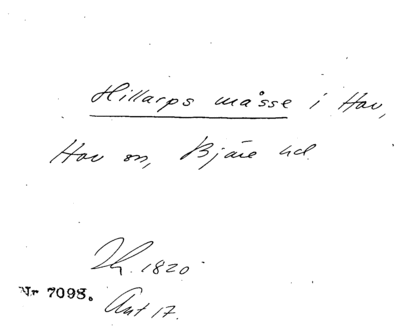 Hillarps måsse i Hov,
Hov sn, Bjäre hd
Th. 1820
Nr 7098.
Ant 17.